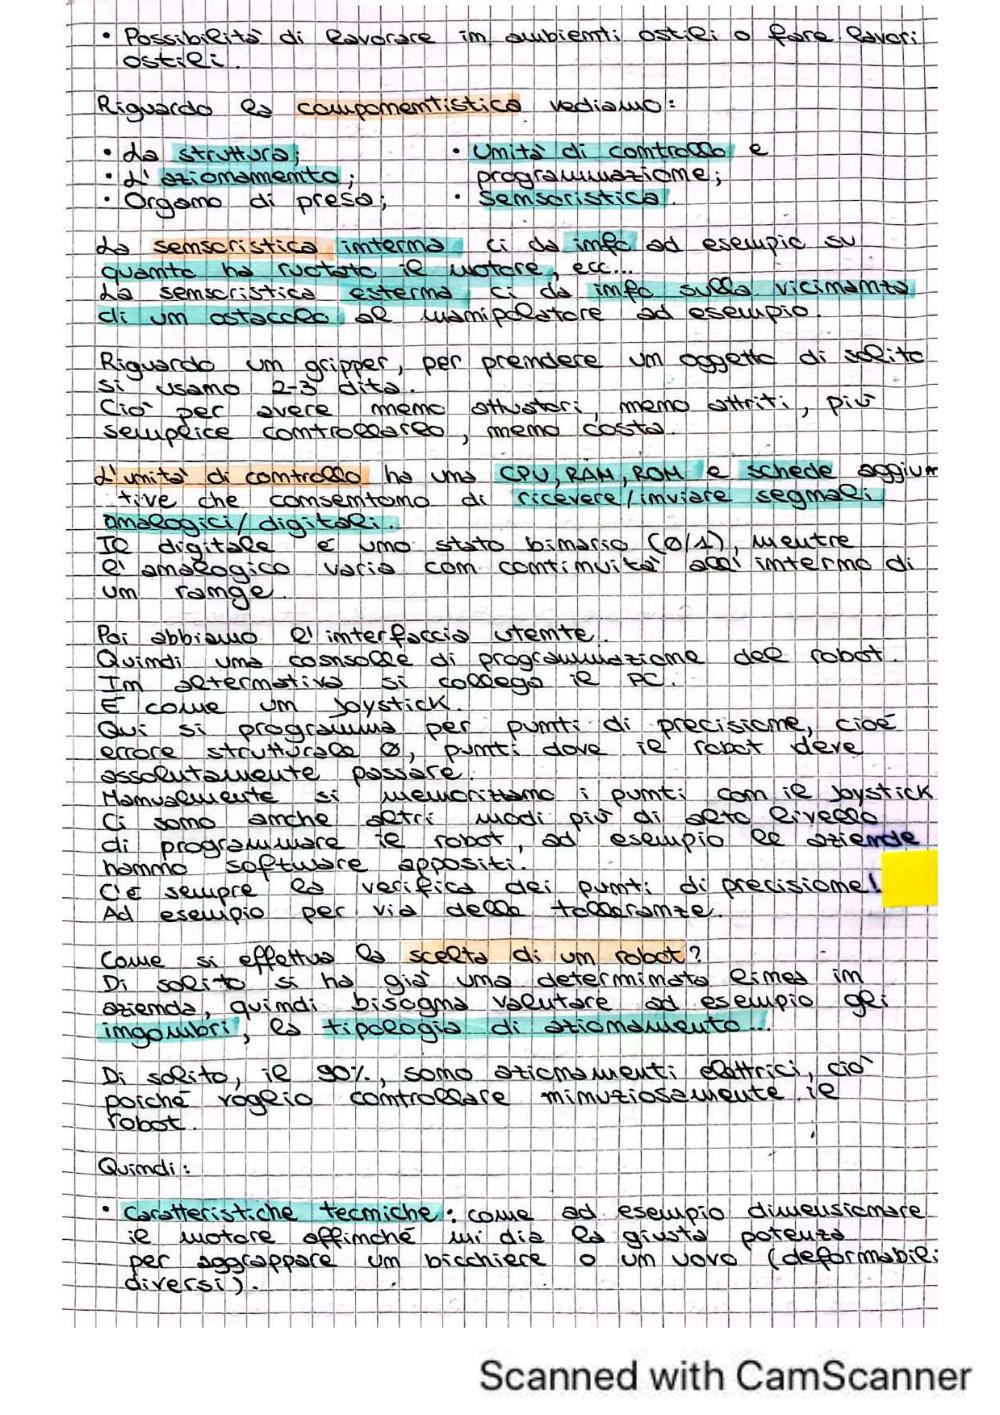 • Possibilità di lavorare in ambienti ostili o fare lavori
ostili.
Riguardo la componentistica vediamo:
• La struttura;
• L'azionamento;
• Organo di presa;
• Unità di controllo e
programmazione;
• Sensoristica.
La sensoristica interna ci da info ad esempio su
quanto ha ruotato il motore, ecc...
La sensoristica esterna ci da info sulla vicinanza
di un ostacolo al manipolatore ad esempio.
Riguardo un gripper, per prendere un oggetto di solito
si usano 2-3 dita.
Ciò per avere meno attuatori, meno attriti, più
semplice controllarlo, meno costa.
L'unità di controllo ha una CPU, RAM, ROM e schede aggiun
tive che consentono di ricevere/inviare segnali
analogici/digitali.
Il digitale è uno stato binario (0/1), mentre
l'analogico varia con continuità all'interno di
un range.
Poi abbiamo l'interfaccia utente.
Quindi una cosnsolle di programmazione del robot.
In alternativa si collega il PC.
È come un joystick.
Qui si programma per punti di precisione, cioè
errore strutturale 0, punti dove il robot deve
assolutamente passare.
Manualmente si memorizzano i punti con il joystick
Ci sono anche altri modi più di alto livello
di programmare il robot, ad esempio le aziende
hanno software appositi.
C'è sempre la verifica dei punti di precisione!
Ad esempio per via delle tolleranze.
Come si effettua la scelta di un robot?
Di solito si ha già una determinata linea in
azienda, quindi bisogna valutare ad esempio gli
ingombri, la tipologia di azionamento...
Di solito, il 90%, sono azionamenti elettrici, ciò
poiché voglio controllare minuziosamente il
robot.
Quindi:
• Caratteristiche tecniche: come ad esempio dimensionare
il motore affinché mi dia la giusta potenza
per aggrappare un bicchiere o un uovo (deformabili
diversi).
Scanned with CamScanner